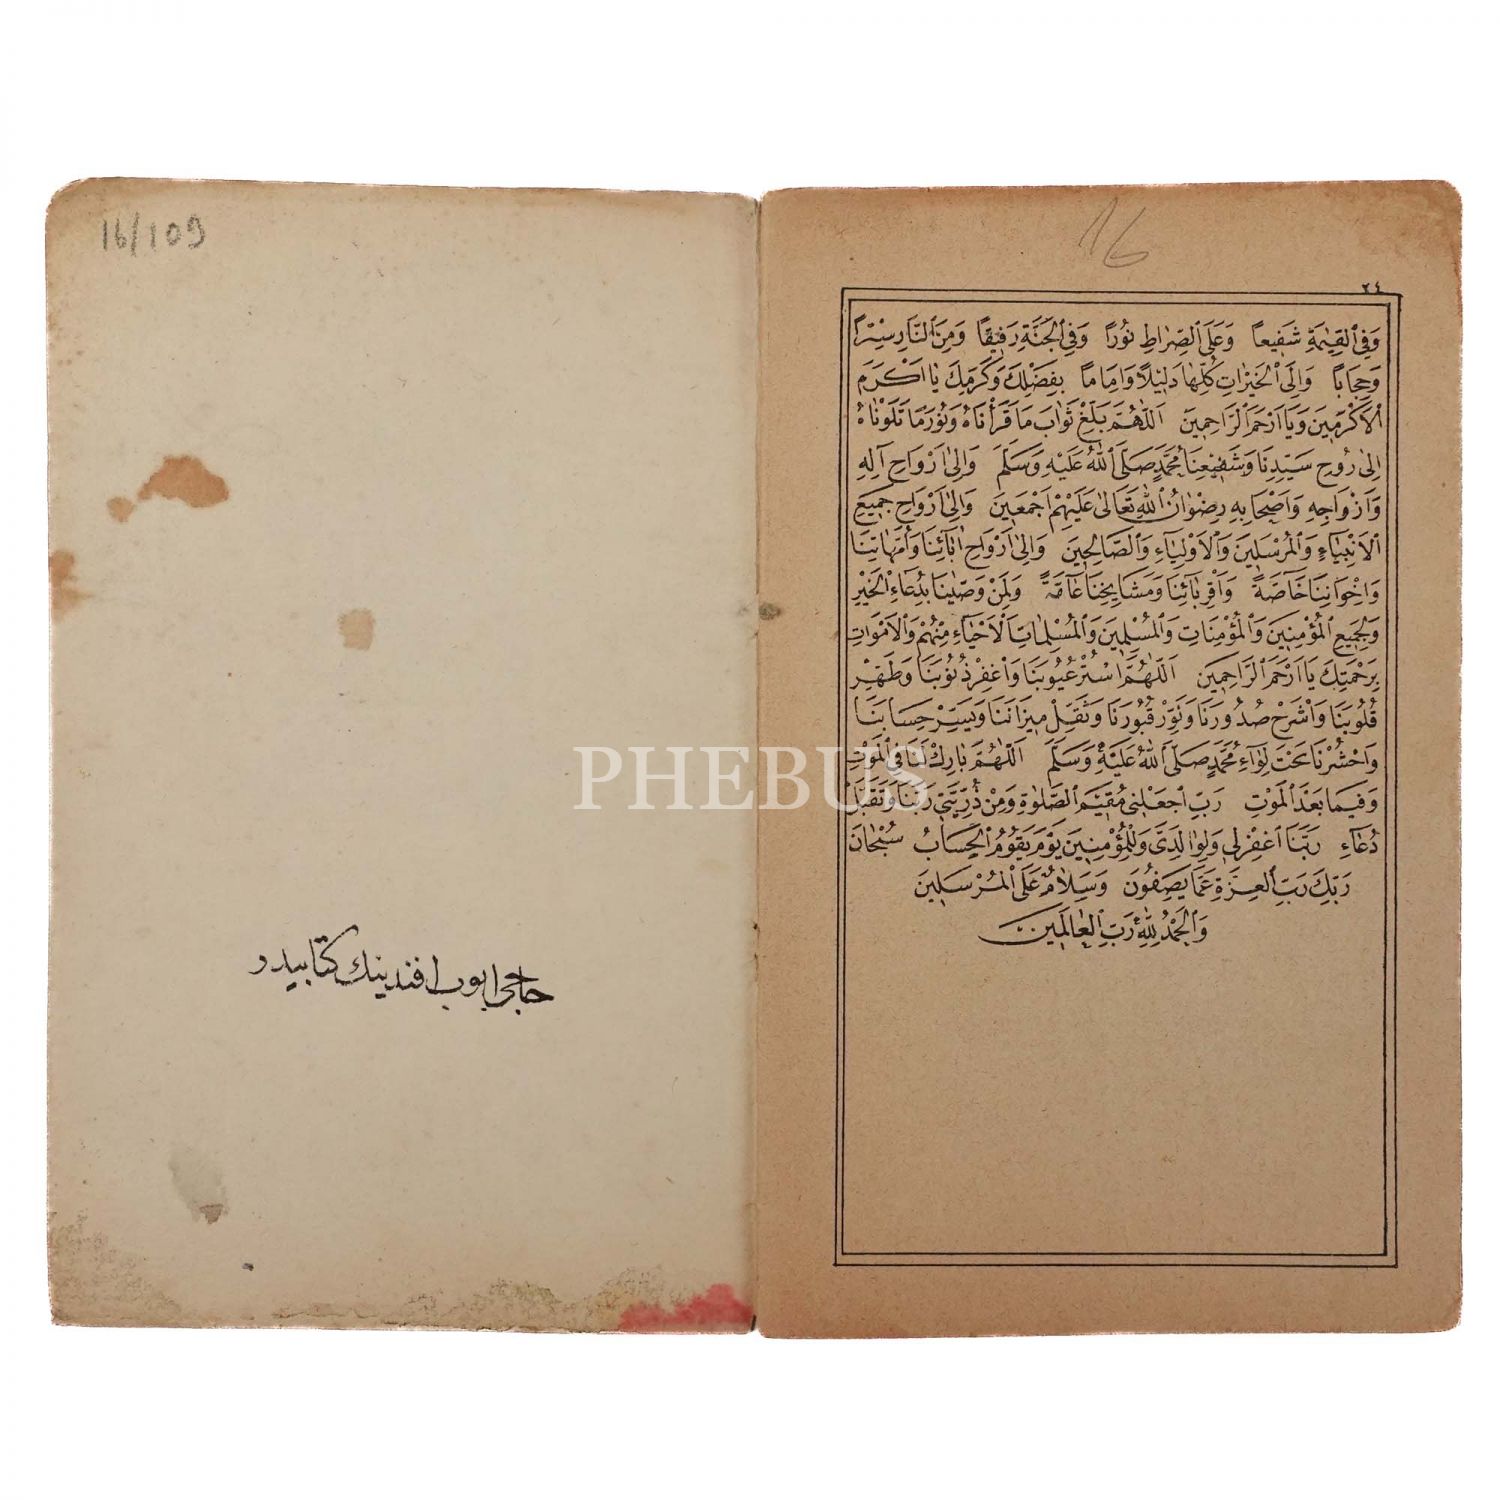 16
٢٤
وَفِي الْقِيٰمَةِ شَفِيعاً وَعَلَى الصِّرَاطِ نُورًا وَفِي الْجَنَّةِ رَفِيقًا وَمِنَ النَّارِ سِتْرًا
وَحِجَاباً وَاِلَى الْخَيْرَاتِ كُلِّهَا دَلِيلًا وَاِمَامًا بِفَضْلِكَ وَكَرَمِكَ يَا اَكْرَمَ
الْاَكْرَمِينَ وَيَا اَرْحَمَ الرَّاحِمِينَ اَللّٰهُمَّ بَلِّغْ ثَوَابَ مَا قَرَأْنَاهُ وَنُورَ مَا تَلَوْنَاهُ
اِلٰى رُوحِ سَيِّدِنَا وَشَفِيعِنَا مُحَمَّدٍ صَلَّى اللّٰهُ عَلَيْهِ وَسَلَّمَ وَاِلٰى اَرْوَاحِ آلِهِ
وَاَزْوَاجِهِ وَاَصْحَابِهِ رِضْوَانُ اللّٰهِ تَعَالٰى عَلَيْهِمْ اَجْمَعِينَ وَاِلٰى اَرْوَاحِ جَمِيعِ
الْاَنْبِيَاءِ وَالْمُرْسَلِينَ وَالْاَوْلِيَاءِ وَالصَّالِحِينَ وَاِلٰى اَرْوَاحِ اٰبَائِنَا وَاُمَّهَاتِنَا
وَاِخْوَانِنَا خَاصَّةً وَاَقْرِبَائِنَا وَمَشَايِخِنَا عَامَّةً وَلِمَنْ وَصَّيْنَا بِدُعَاءِ الْخَيْرِ
وَلِجَمِيعِ الْمُؤْمِنِينَ وَالْمُؤْمِنَاتِ وَالْمُسْلِمِينَ وَالْمُسْلِمَاتِ الْاَحْيَاءِ مِنْهُمْ وَالْاَمْوَاتِ
بِرَحْمَتِكَ يَا اَرْحَمَ الرَّاحِمِينَ اَللّٰهُمَّ اسْتُرْ عُيُوبَنَا وَاغْفِرْ ذُنُوبَنَا وَطَهِّرْ
قُلُوبَنَا وَاشْرَحْ صُدُورَنَا وَنَوِّرْ قُبُورَنَا وَثَقِّلْ مِيزَانَنَا وَيَسِّرْ حِسَابَنَا
وَاحْشُرْنَا تَحْتَ لِوَاءِ مُحَمَّدٍ صَلَّى اللّٰهُ عَلَيْهِ وَسَلَّمَ اَللّٰهُمَّ بَارِكْ لَنَا فِي الْمَوْتِ
وَفِيمَا بَعْدَ الْمَوْتِ رَبِّ اجْعَلْنِي مُقِيمَ الصَّلٰوةِ وَمِنْ ذُرِّيَّتِي رَبَّنَا وَتَقَبَّلْ
دُعَاءِ رَبَّنَا اغْفِرْ لِي وَلِوَالِدَيَّ وَلِلْمُؤْمِنِينَ يَوْمَ يَقُومُ الْحِسَابُ سُبْحَانَ
رَبِّكَ رَبِّ الْعِزَّةِ عَمَّا يَصِفُونَ وَسَلَامٌ عَلَى الْمُرْسَلِينَ
وَالْحَمْدُ لِلّٰهِ رَبِّ الْعَالَمِينَ
16/109
حاجی ایوب افندینك كتابیدر
PHEBUS